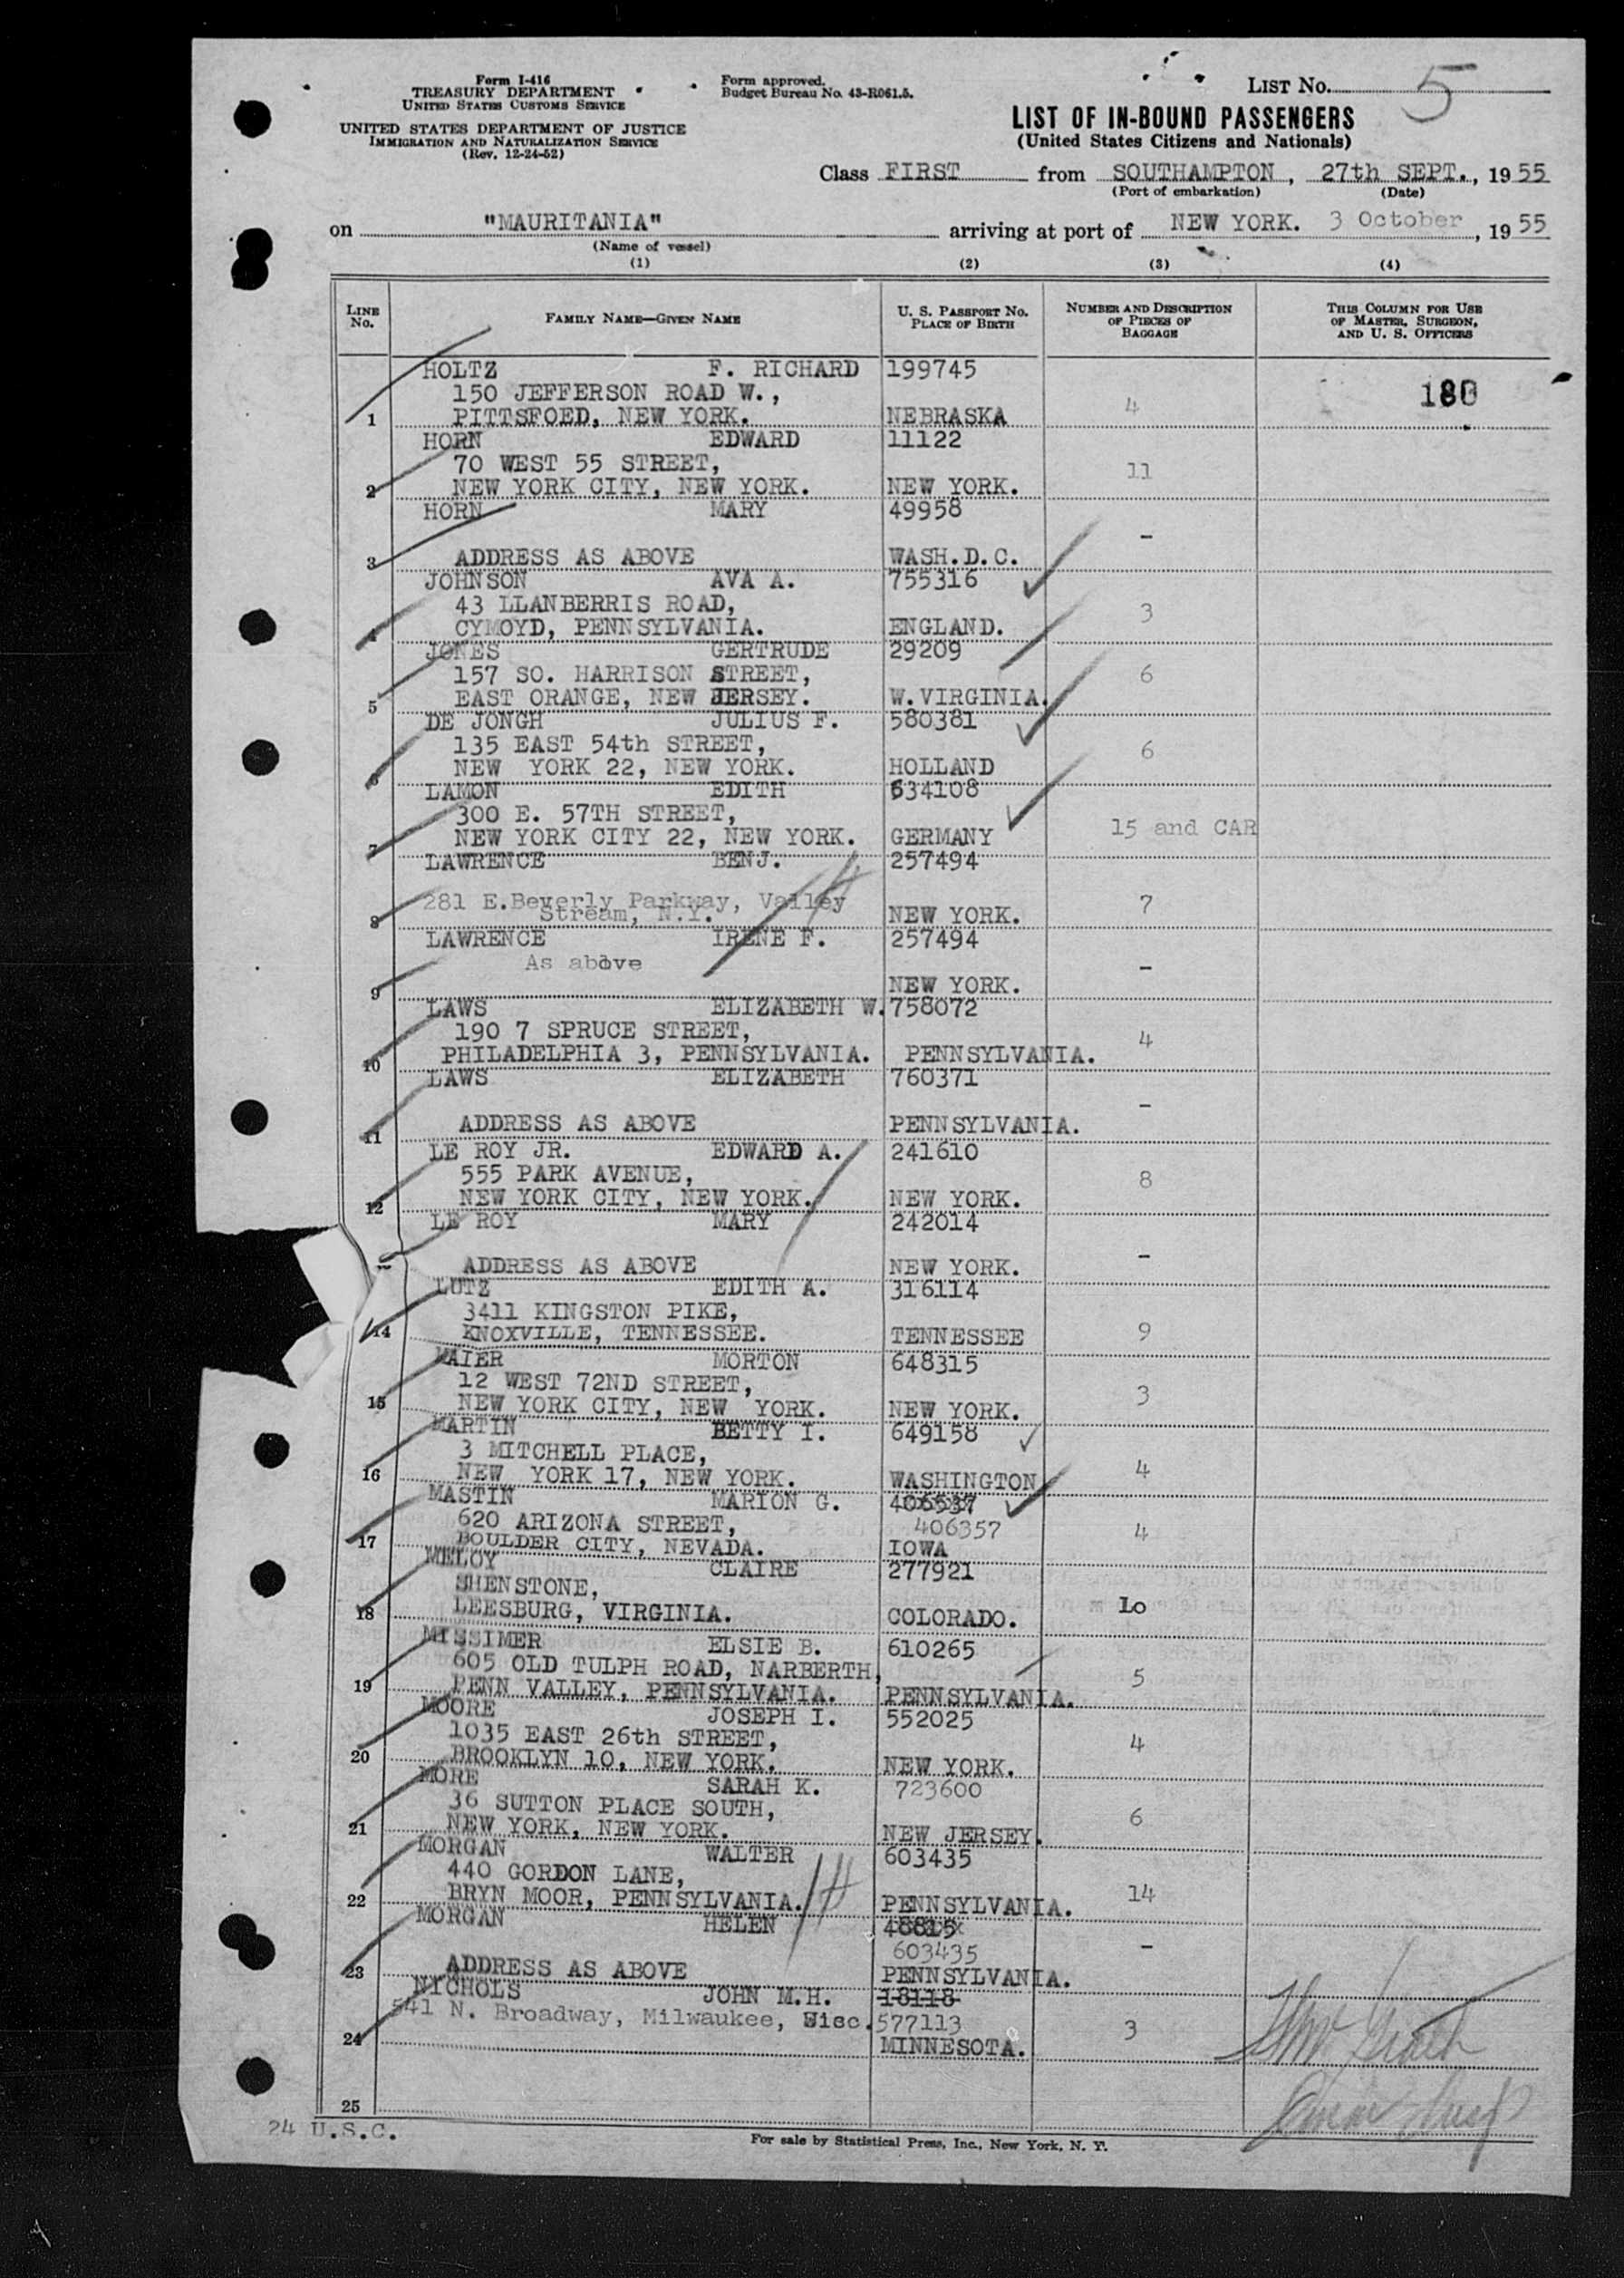 Form I-416
TREASURY DEPARTMENT
UNITED STATES CUSTOMS SERVICE
UNITED STATES DEPARTMENT OF JUSTICE
IMMIGRATION AND NATURALIZATION SERVICE
(Rev. 12-24-52)
Form approved.
Budget Bureau No. 43-R061.5.
LIST No. 5
LIST OF IN-BOUND PASSENGERS
(United States Citizens and Nationals)
Class FIRST from SOUTHAMPTON, 27th SEPT., 1955
(Port of embarkation) (Date)
on "MAURITANIA" arriving at port of NEW YORK. 3 October, 1955
(Name of vessel)
(1) (2) (3) (4)
LINE No. FAMILY NAME—GIVEN NAME U. S. PASSPORT No. PLACE OF BIRTH NUMBER AND DESCRIPTION OF PIECES OF BAGGAGE THIS COLUMN FOR USE OF MASTER, SURGEON, AND U. S. OFFICERS
HOLTZ F. RICHARD 199745
150 JEFFERSON ROAD W., 4 180
1 PITTSFOED, NEW YORK. NEBRASKA
HORN EDWARD 11122
70 WEST 55 STREET, 11
2 NEW YORK CITY, NEW YORK. NEW YORK.
HORN MARY 49958
-
3 ADDRESS AS ABOVE WASH.D.C.
JOHNSON AVA A. 755316
43 LLANBERRIS ROAD, 3
4 CYMOYD, PENNSYLVANIA. ENGLAND.
JONES GERTRUDE 29209
157 SO. HARRISON STREET, 6
5 EAST ORANGE, NEW JERSEY. W.VIRGINIA.
DE JONGH JULIUS F. 580381
135 EAST 54th STREET, 6
6 NEW YORK 22, NEW YORK. HOLLAND
LAMON EDITH 634108
300 E. 57TH STREET, 15 and CAR
7 NEW YORK CITY 22, NEW YORK. GERMANY
LAWRENCE BENJ. 257494
281 E.Beverly Parkway, Valley 7
8 Stream, N.Y. NEW YORK.
LAWRENCE IRENE F. 257494
As above -
9 NEW YORK.
LAWS ELIZABETH W. 758072
190 7 SPRUCE STREET, 4
10 PHILADELPHIA 3, PENNSYLVANIA. PENNSYLVANIA.
LAWS ELIZABETH 760371
-
11 ADDRESS AS ABOVE PENNSYLVANIA.
LE ROY JR. EDWARD A. 241610
555 PARK AVENUE, 8
12 NEW YORK CITY, NEW YORK. NEW YORK.
LE ROY MARY 242014
-
ADDRESS AS ABOVE NEW YORK.
LUTZ EDITH A. 316114
3411 KINGSTON PIKE, 9
14 KNOXVILLE, TENNESSEE. TENNESSEE
MAIER MORTON 648315
12 WEST 72ND STREET, 3
15 NEW YORK CITY, NEW YORK. NEW YORK.
MARTIN BETTY I. 649158
3 MITCHELL PLACE, 4
16 NEW YORK 17, NEW YORK. WASHINGTON
MASTIN MARION G. 406537
620 ARIZONA STREET, 406357 4
17 BOULDER CITY, NEVADA. IOWA
MELOY CLAIRE 277921
SHENSTONE, 10
18 LEESBURG, VIRGINIA. COLORADO.
MISSIMER ELSIE B. 610265
605 OLD TULPH ROAD, NARBERTH, 5
19 PENN VALLEY, PENNSYLVANIA. PENNSYLVANIA.
MOORE JOSEPH I. 552025
1035 EAST 26th STREET, 4
20 BROOKLYN 10, NEW YORK. NEW YORK.
MORE SARAH K. 723600
36 SUTTON PLACE SOUTH, 6
21 NEW YORK, NEW YORK. NEW JERSEY.
MORGAN WALTER 603435
440 GORDON LANE, 14
22 BRYN MOOR, PENNSYLVANIA. PENNSYLVANIA.
MORGAN HELEN 48815
603435 -
23 ADDRESS AS ABOVE PENNSYLVANIA.
NICHOLS JOHN M.H. 18118
541 N. Broadway, Milwaukee, Wisc. 577113 3
24 MINNESOTA.
25
24 U.S.C.
For sale by Statistical Press, Inc., New York, N. Y.